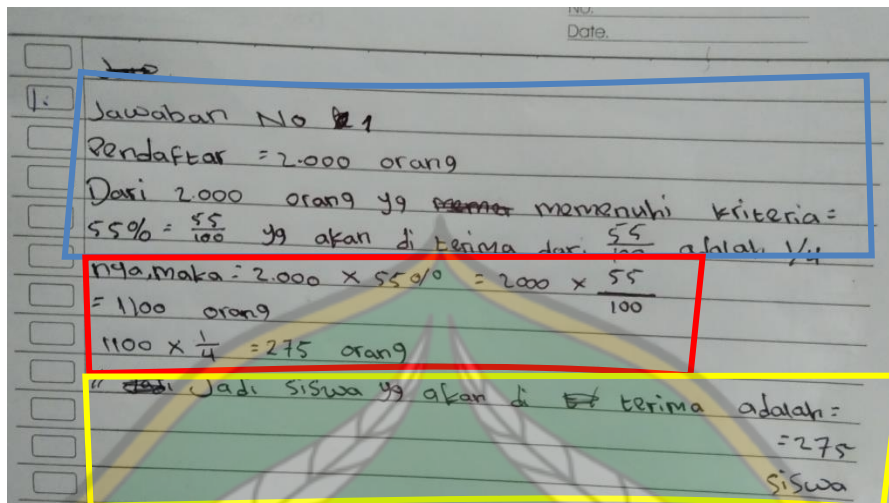 No.
Date.
1.
Jawaban No 1
Pendaftar = 2.000 orang
Dari 2.000 orang yg memenuhi kriteria =
55% = 55/100 yg akan di terima dari 55/100 adalah 1/4
nya, maka = 2.000 × 55% = 2000 × 55/100
= 1100 orang
1100 × 1/4 = 275 orang
" Jadi siswa yg akan di terima adalah =
= 275
siswa